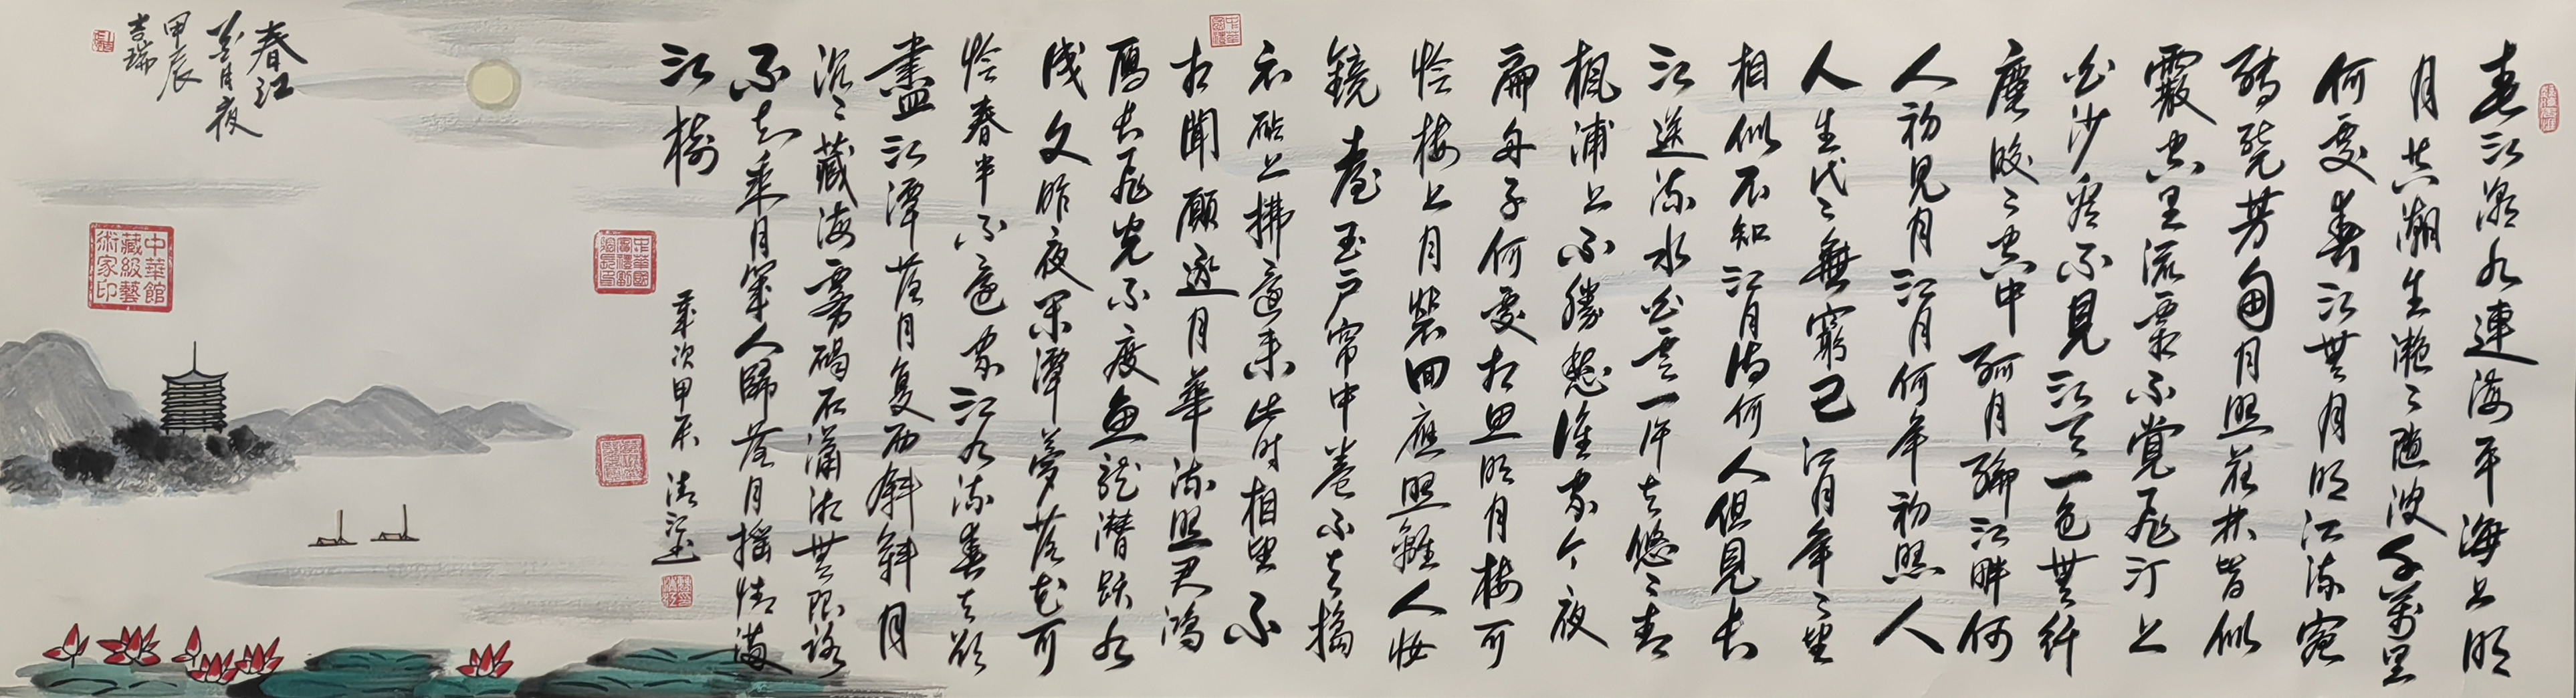 春江潮水連海平海上明
月共潮生灔〻隨波千萬里
何處春江無月明江流宛
轉繞芳甸月照花林皆似
霰空里流霜不覺飛汀上
白沙看不見江天一色無纤
塵皎〻空中孤月輪江畔何
人初見月江月何年初照人
人生代〻無窮已江月年〻望
相似不知江月待何人但見長
江送流水白雲一片去悠〻青
楓浦上不勝愁誰家今夜
扁舟子何處相思明月樓可
憐樓上月裴回應照離人妝
鏡臺玉戶帘中卷不去擣
衣砧上拂還来此时相望不
相聞願逐月華流照君鴻
雁長飛光不度魚龍潛躍水
成文昨夜閑潭夢落花可
憐春半不還家江水流春去欲
盡江潭落月复西斜斜月
沉〻藏海霧碣石瀟湘無限路
不知乘月幾人歸落月摇情滿
江樹
歲次甲辰
春江
花月夜
甲辰
吉瑞
中華館
藏級藝
術家印